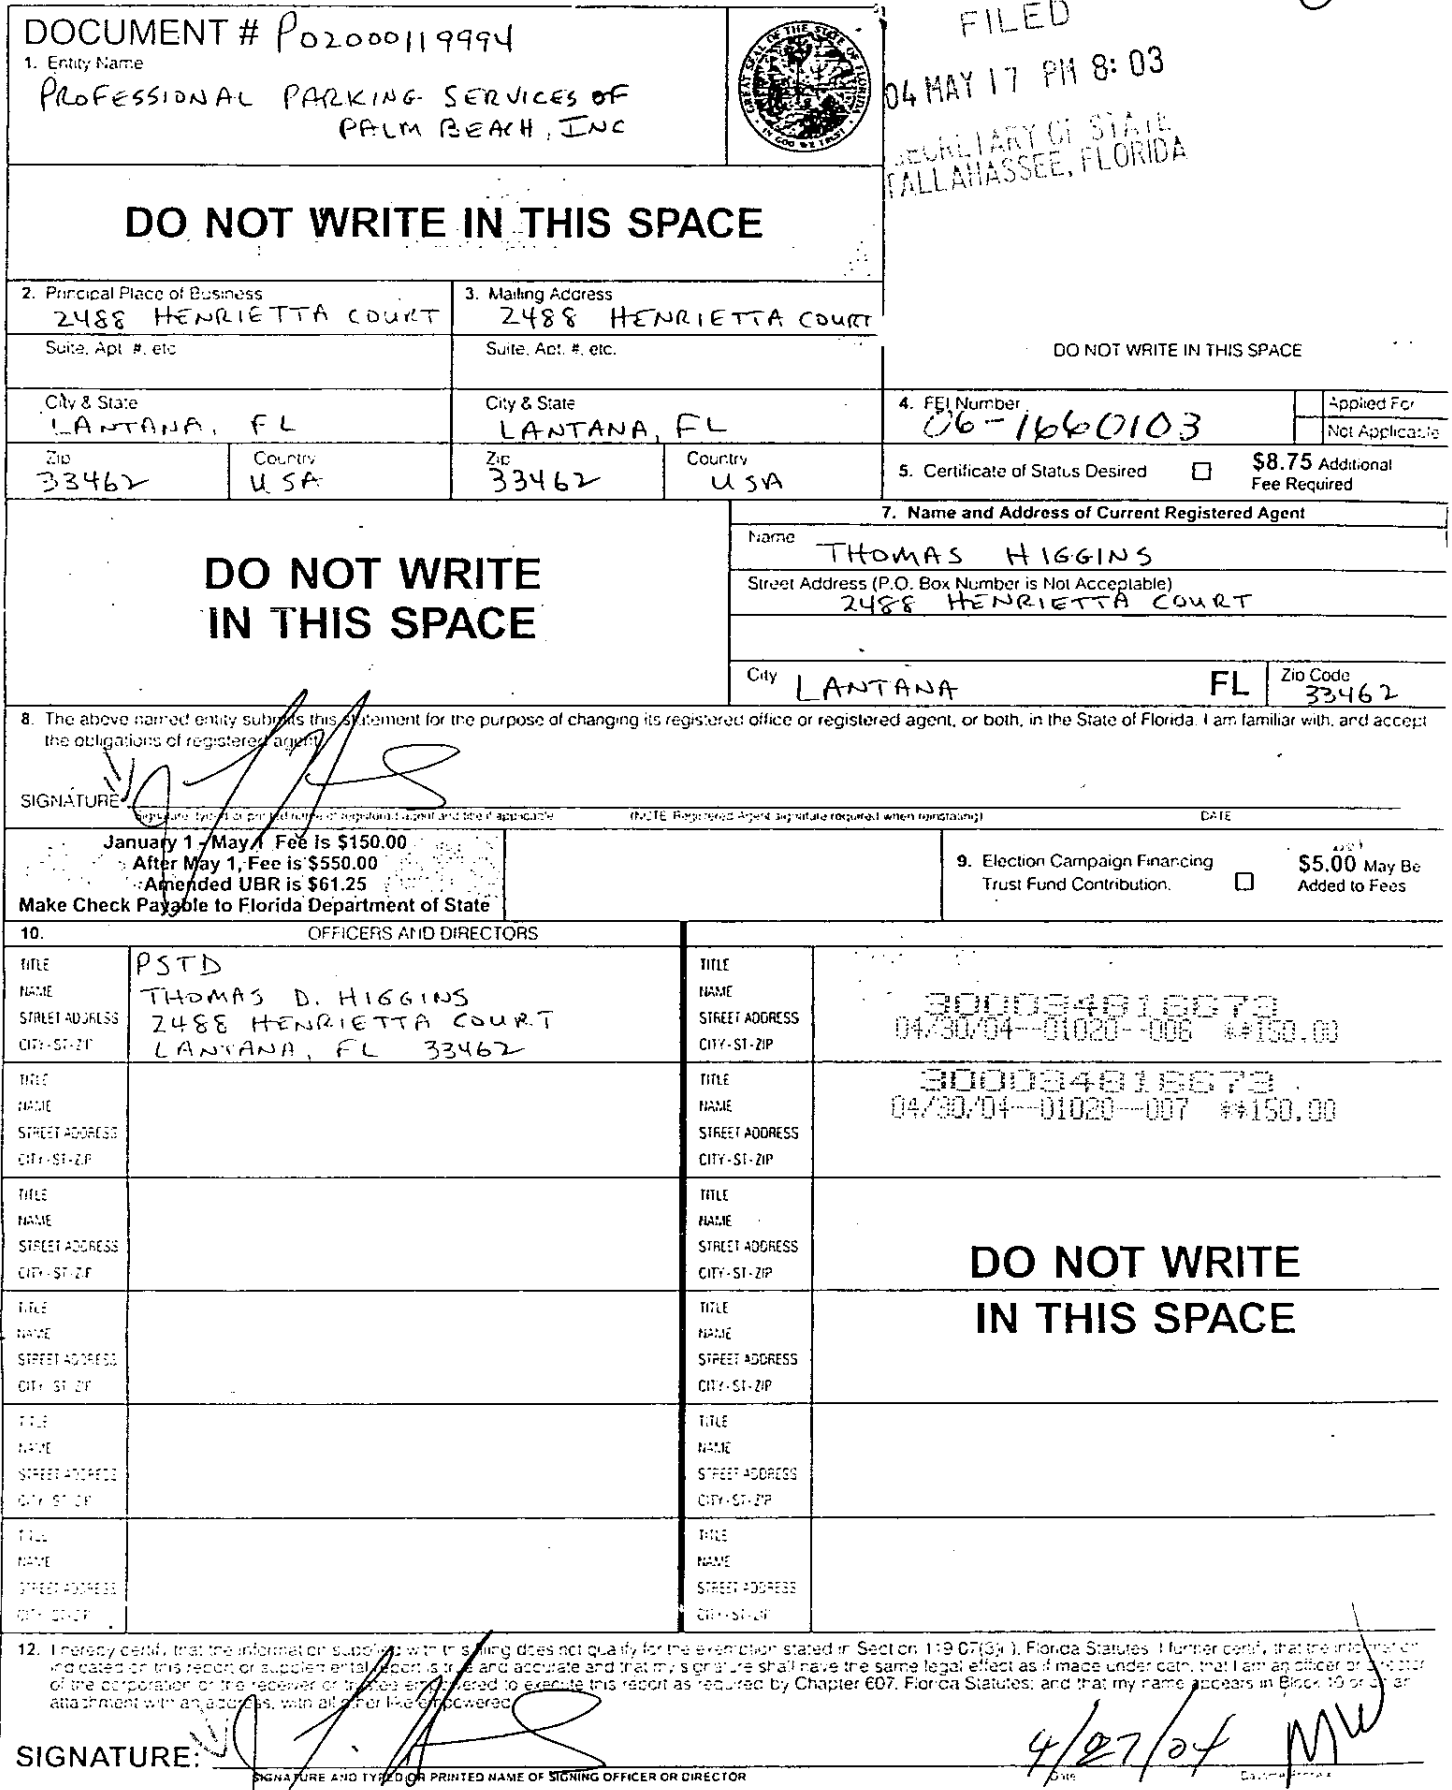 DOCUMENT # P02000119994
1. Entity Name
PROFESSIONAL PARKING SERVICES OF
PALM BEACH, INC
GREAT SEAL OF THE STATE OF FLORIDA
IN GOD WE TRUST
FILED
04 MAY 17 PM 8:03
SECRETARY OF STATE
TALLAHASSEE, FLORIDA
DO NOT WRITE IN THIS SPACE
2. Principal Place of Business
2488 HENRIETTA COURT
3. Mailing Address
2488 HENRIETTA COURT
Suite, Apt. #, etc.
Suite, Apt. #, etc.
DO NOT WRITE IN THIS SPACE
City & State
LANTANA, FL
City & State
LANTANA, FL
4. FEI Number
06-1660103
Applied For
Not Applicable
Zip
33462
Country
USA
Zip
33462
Country
USA
5. Certificate of Status Desired
$8.75 Additional
Fee Required
DO NOT WRITE
IN THIS SPACE
7. Name and Address of Current Registered Agent
Name
THOMAS HIGGINS
Street Address (P.O. Box Number is Not Acceptable)
2488 HENRIETTA COURT
City
LANTANA
FL
Zip Code
33462
8. The above named entity submits this statement for the purpose of changing its registered office or registered agent, or both, in the State of Florida. I am familiar with, and accept
the obligations of registered agent.
SIGNATURE
Signature, typed or printed name of registered agent and title if applicable
(NOTE: Registered Agent signature required when reinstating)
DATE
January 1 - May 1 Fee is $150.00
After May 1, Fee is $550.00
Amended UBR is $61.25
Make Check Payable to Florida Department of State
9. Election Campaign Financing
Trust Fund Contribution.
$5.00 May Be
Added to Fees
10. OFFICERS AND DIRECTORS
TITLE
NAME
STREET ADDRESS
CITY-ST-ZIP
PSTD
THOMAS D. HIGGINS
2488 HENRIETTA COURT
LANTANA, FL 33462
TITLE
NAME
STREET ADDRESS
CITY-ST-ZIP
300034816673
04/30/04--01020--006 **150.00
TITLE
NAME
STREET ADDRESS
CITY-ST-ZIP
TITLE
NAME
STREET ADDRESS
CITY-ST-ZIP
300034816673
04/30/04--01020--007 **150.00
TITLE
NAME
STREET ADDRESS
CITY-ST-ZIP
TITLE
NAME
STREET ADDRESS
CITY-ST-ZIP
DO NOT WRITE
IN THIS SPACE
TITLE
NAME
STREET ADDRESS
CITY-ST-ZIP
TITLE
NAME
STREET ADDRESS
CITY-ST-ZIP
TITLE
NAME
STREET ADDRESS
CITY-ST-ZIP
TITLE
NAME
STREET ADDRESS
CITY-ST-ZIP
TITLE
NAME
STREET ADDRESS
CITY-ST-ZIP
TITLE
NAME
STREET ADDRESS
CITY-ST-ZIP
12. I hereby certify that the information supplied with this filing does not qualify for the exemption stated in Section 119.07(3)(i), Florida Statutes. I further certify that the information
indicated on this report or supplemental report is true and accurate and that my signature shall have the same legal effect as if made under oath; that I am an officer or director
of the corporation or the receiver or trustee empowered to execute this report as required by Chapter 607, Florida Statutes; and that my name appears in Block 10 or on an
attachment with an address, with all other like empowered.
SIGNATURE:
SIGNATURE AND TYPED OR PRINTED NAME OF SIGNING OFFICER OR DIRECTOR
4/27/04
Date
Daytime Phone #
MW